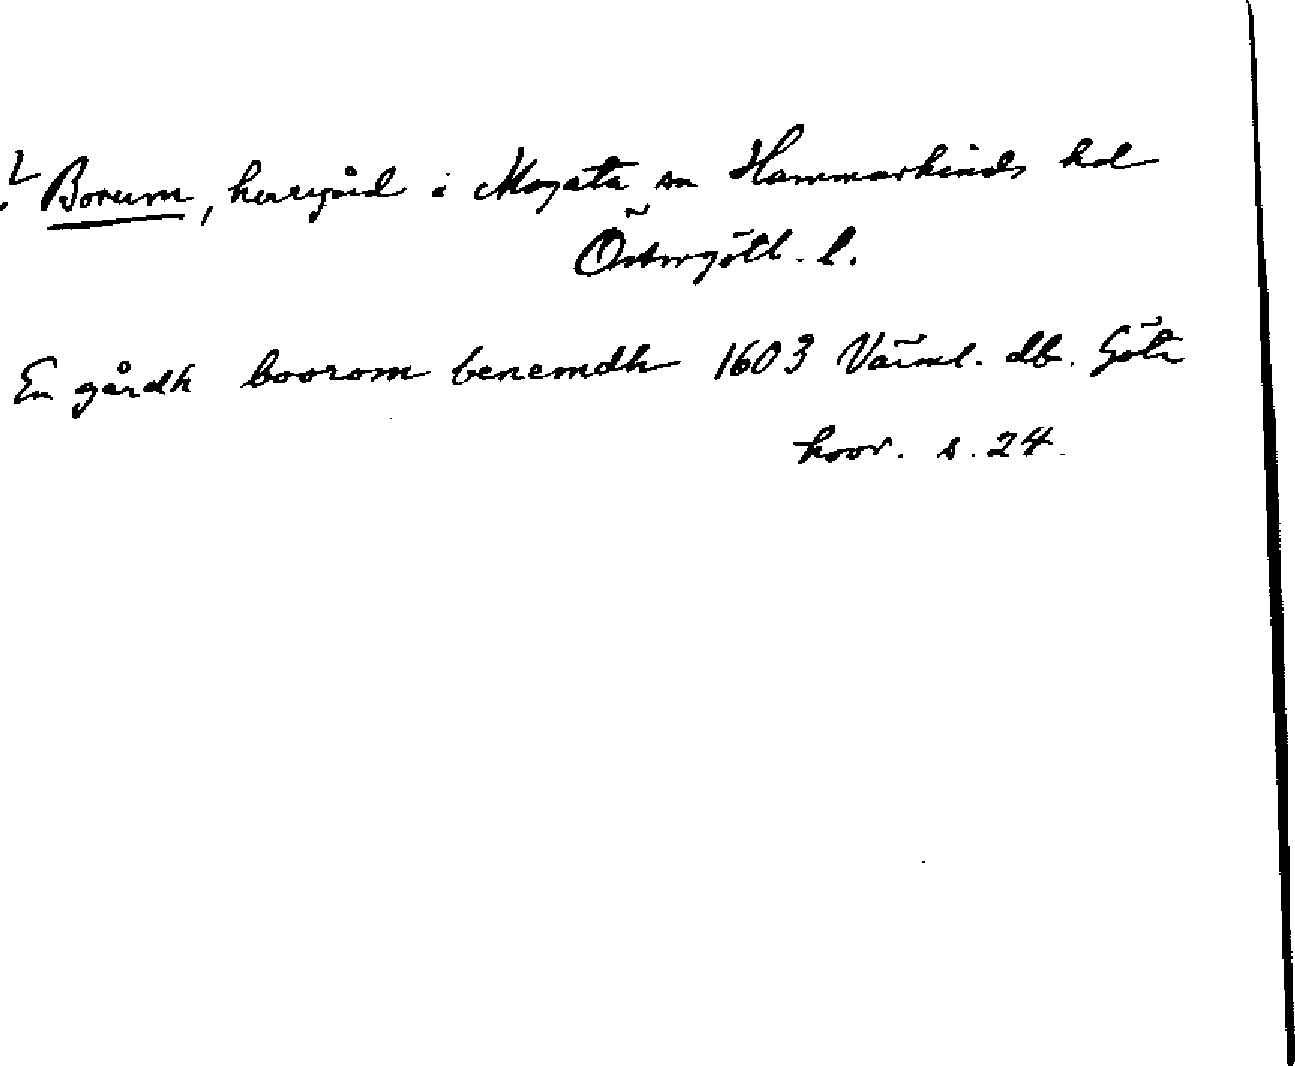 Borum, herrgård i Mogata sn Hammarkinds hd
Östergötl. l.
En gårdh boorom benemdh 1603 Värml. db. Göta
hovr. s. 24.